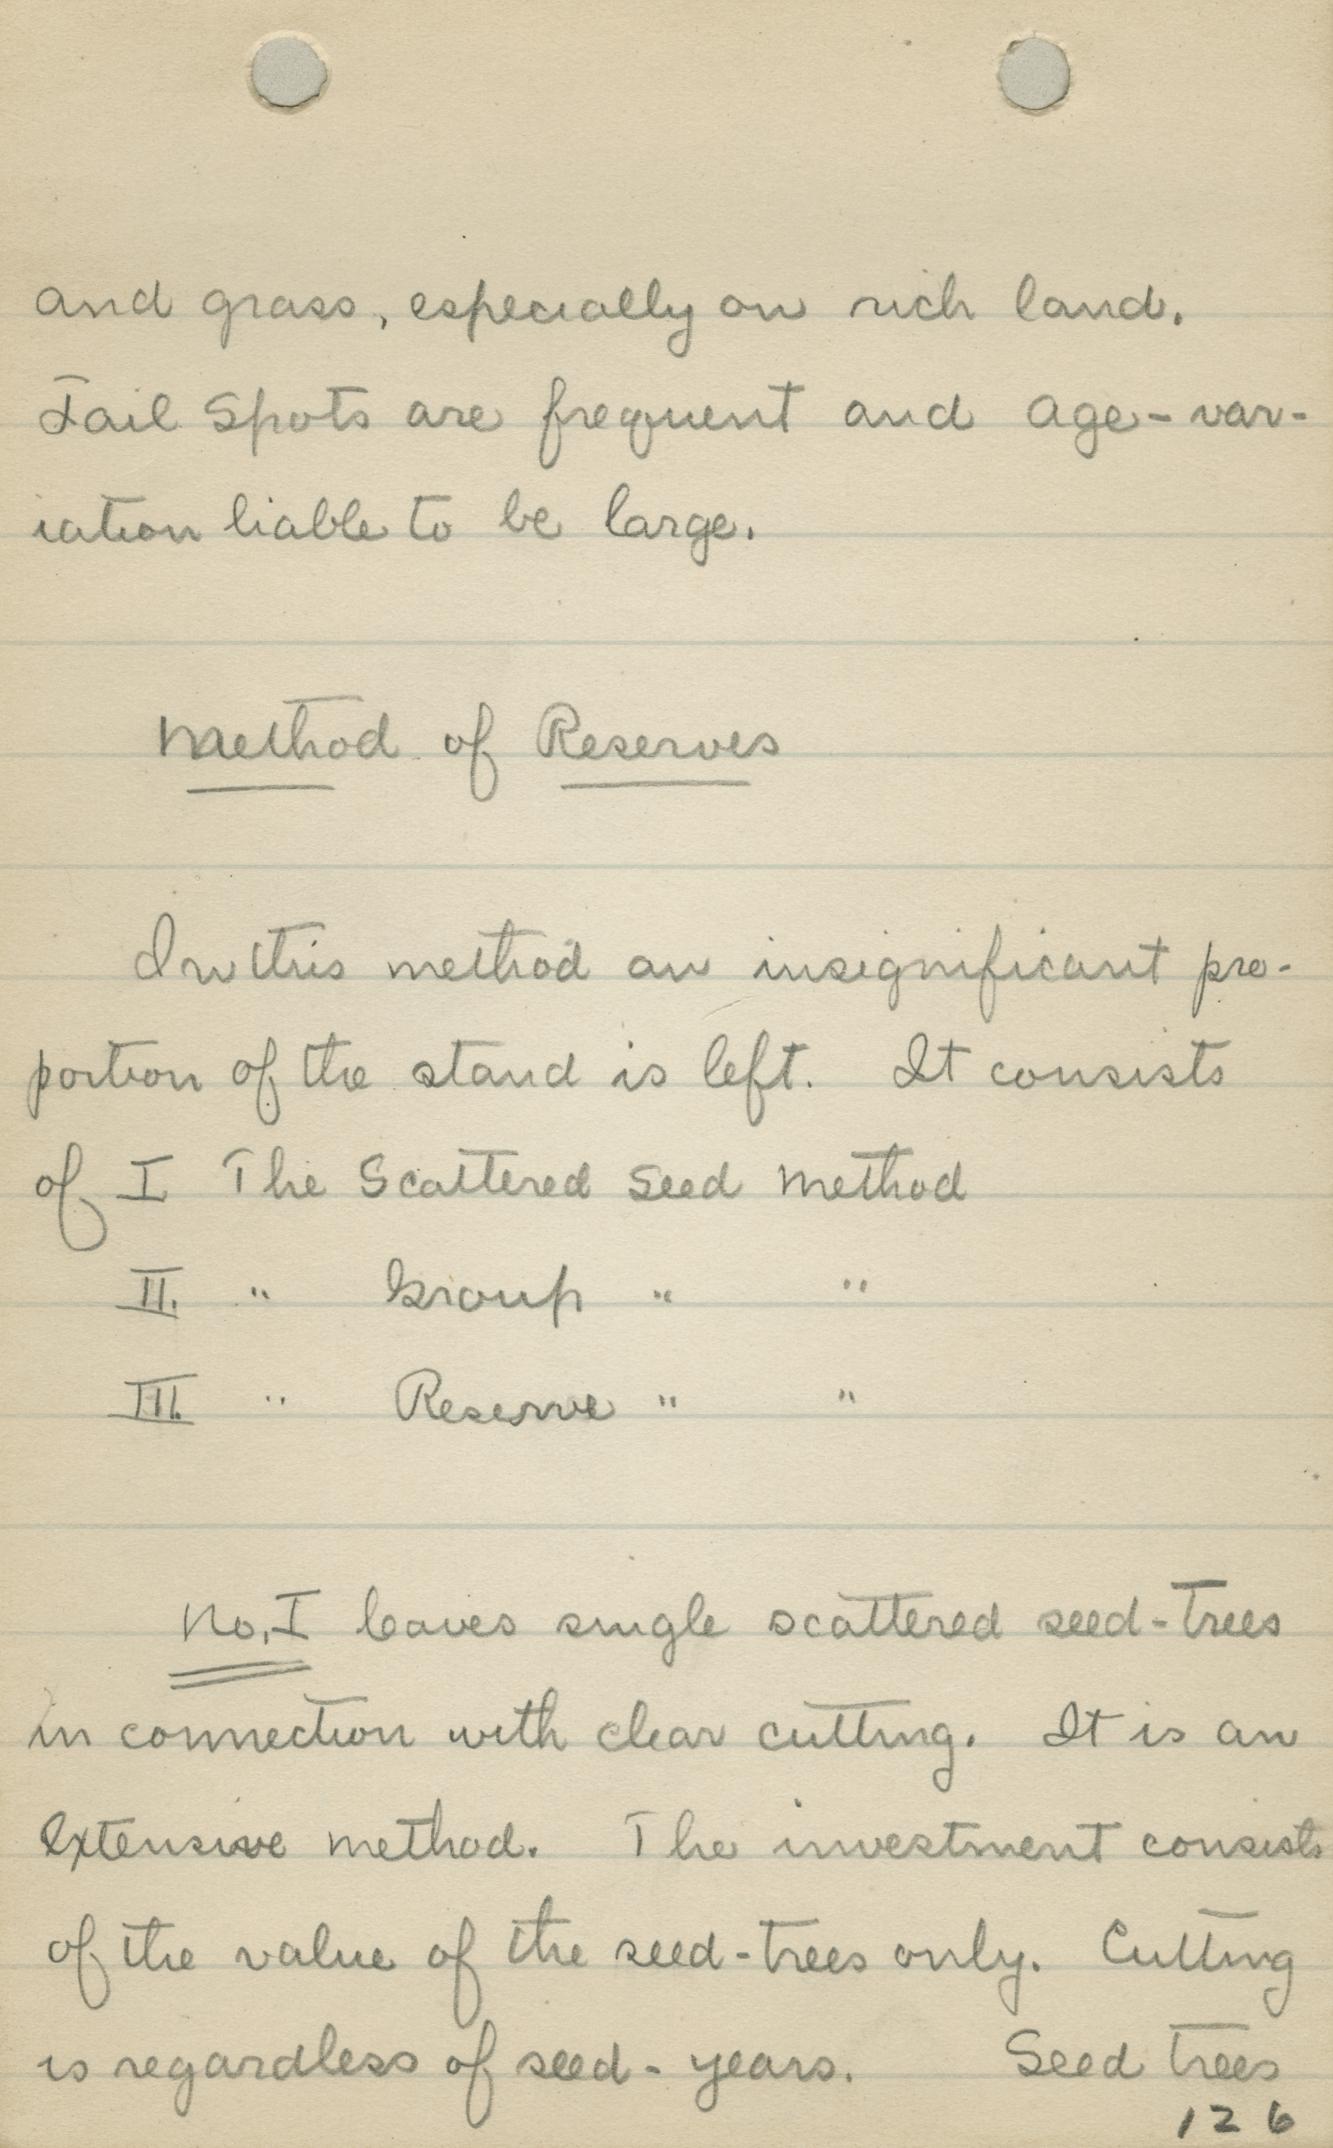 and grass, especially on rich land.
Fail Spots are frequent and age-var-
iation liable to be large.
Method of Reserves
In this method an insignificant pro-
portion of the stand is left. It consists
of I The Scattered Seed Method
II. " Group " "
III. " Reserve " "
No. I leaves single scattered seed-trees
in connection with clear cutting. It is an
extensive method. The investment consists
of the value of the seed-trees only. Cutting
is regardless of seed-years. Seed trees
126